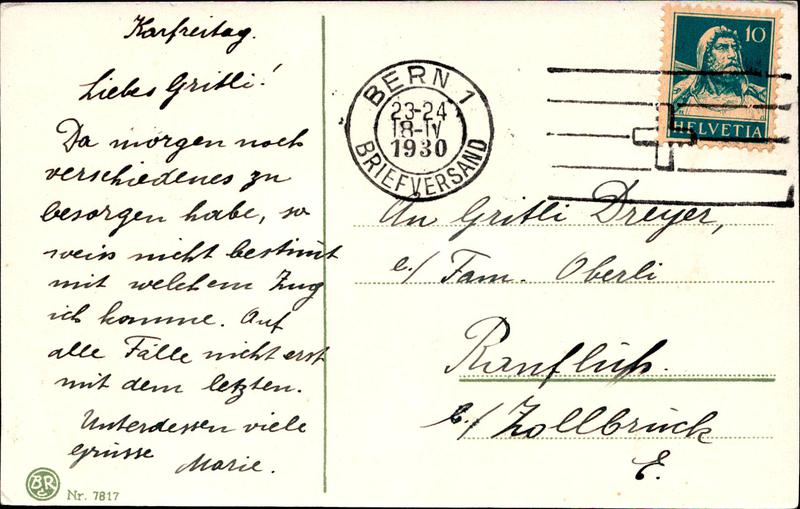 Karfreitag.
Liebes Gritli!
Da morgen noch
verschiedenes zu
besorgen habe, so
weiss nicht bestimt
mit welchem Zug
ich komme. Auf
alle Fälle nicht erst
mit dem letzten.
Unterdessen viele
grüsse Marie.
BR
Nr. 7817
BERN 1
23-24
18-IV
1930
BRIEFVERSAND
10
HELVETIA
An Gritli Dreyer,
c./ Fam. Oberli
Ranflüh.
b./ Zollbrück
E.